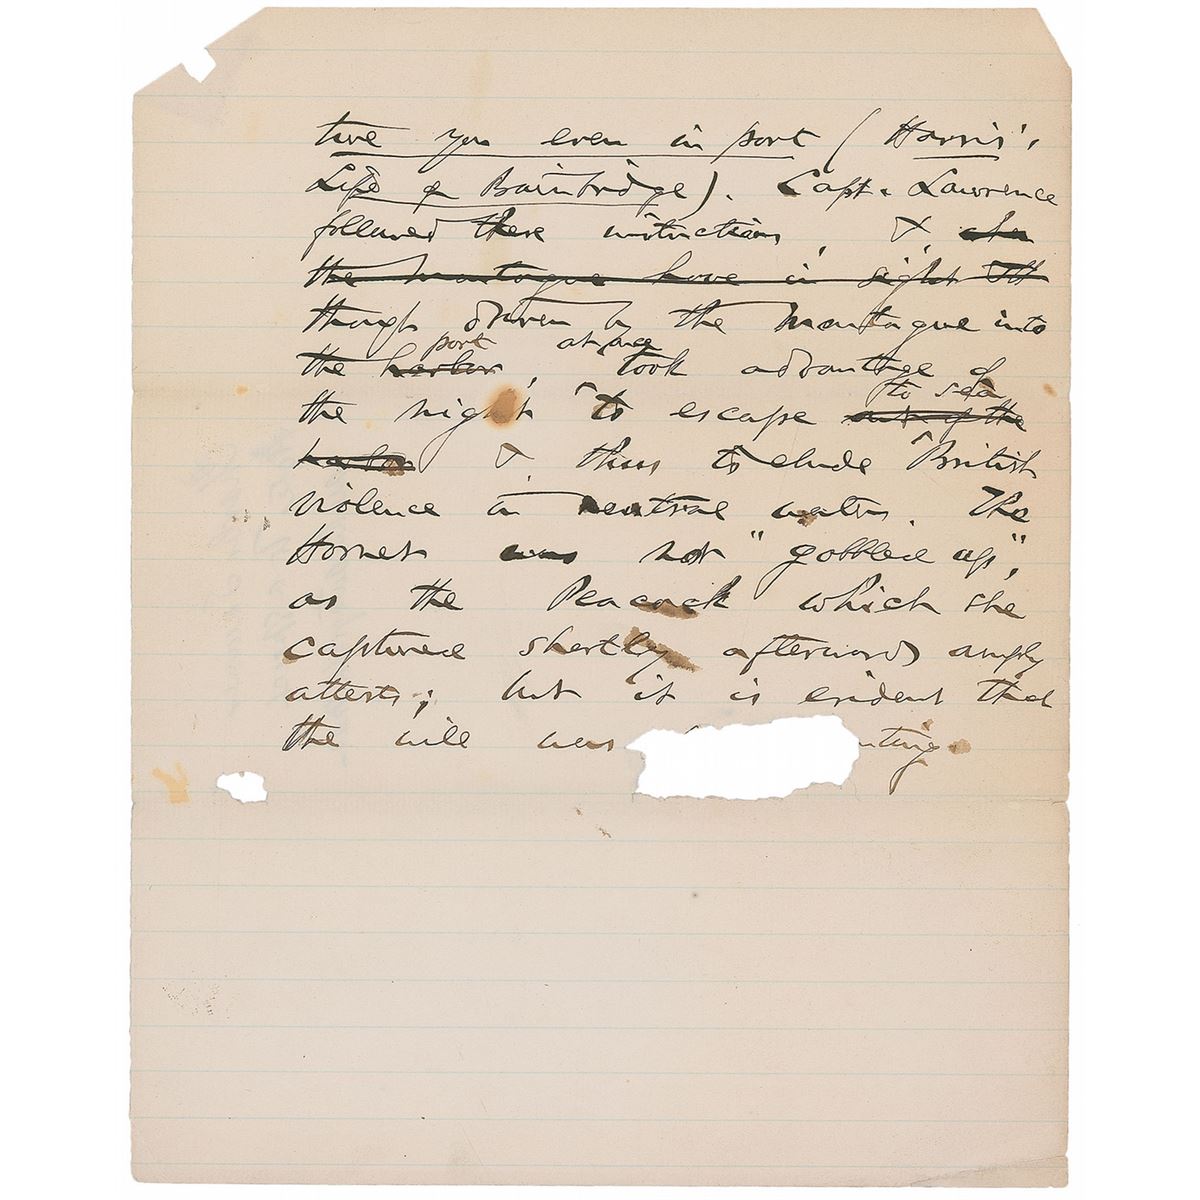 ture you even in port (Harris',
Life of Bainbridge). Capt. Lawrence
followed these instructions, &, when
the Montague hove in sight
though driven by the Montague into
port at once
the harbor, took advantage of
to sea
the night to escape out of the
harbor & thus to elude British
violence in neutral waters. The
Hornet was not "gobbled up",
as the Peacock which she
captured shortly afterwards amply
attests; but it is evident that
the will was
nting.